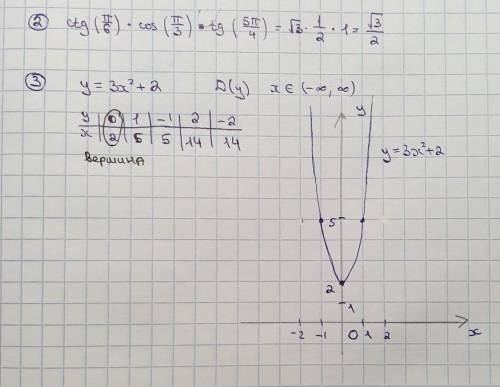 ② ctg(π/6) · cos(π/3) · tg(5π/4) = √3 · 1/2 · 1 = √3/2
③ y = 3x² + 2 D(y) x ∈ (-∞, ∞)
y | 0 | 1 | -1 | 2 | -2
x | 2 | 5 | 5 | 14 | 14
вершина
y
y = 3x² + 2
5
2
1
-2 -1 0 1 2 x